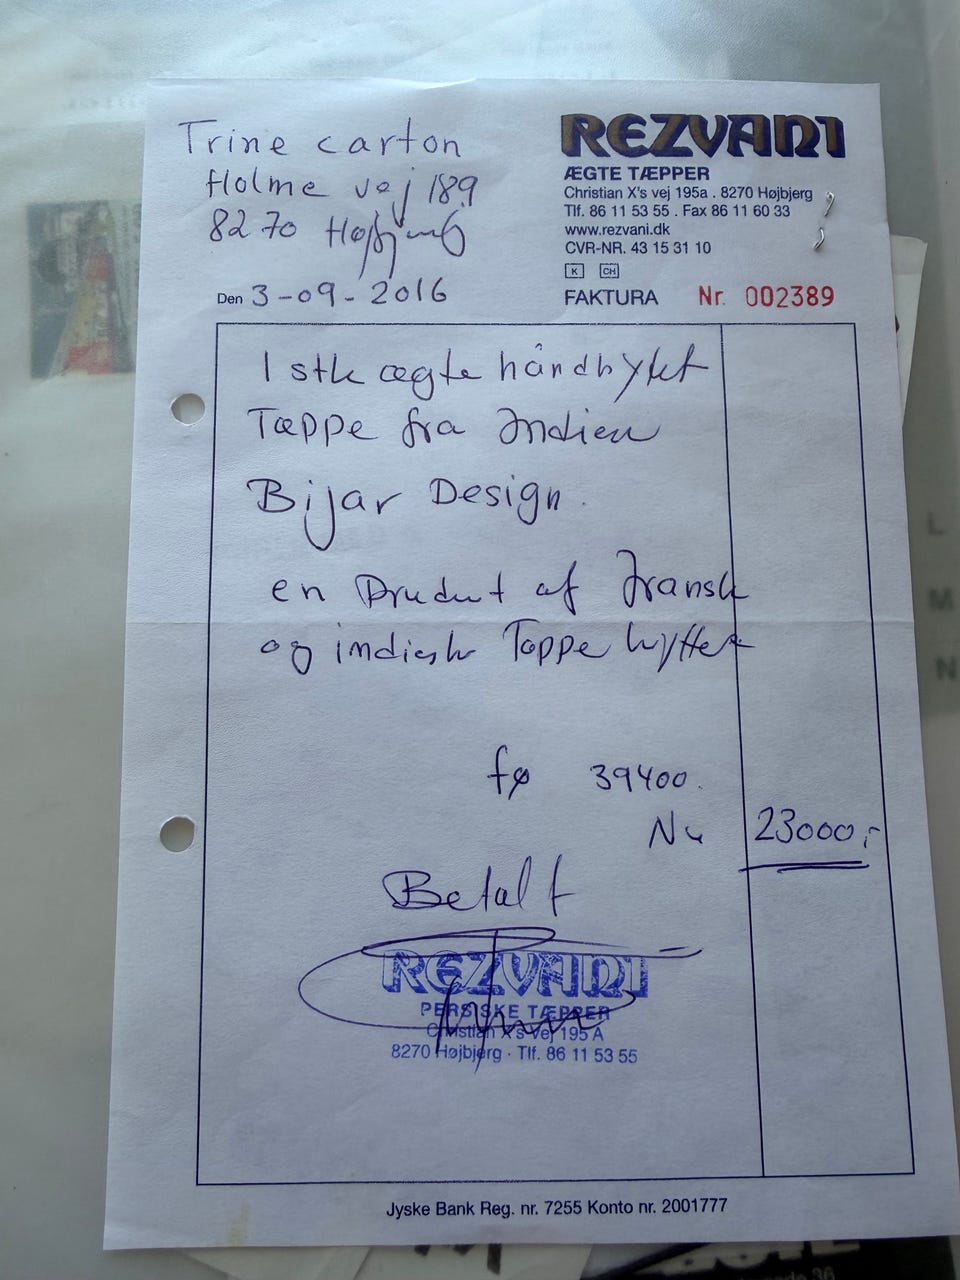 Trine carton
Holme vej 189
8270 Højbjerg
Den 3-09-2016
REZVANI
ÆGTE TÆPPER
Christian X's vej 195a . 8270 Højbjerg
Tlf. 86 11 53 55 . Fax 86 11 60 33
www.rezvani.dk
CVR-NR. 43 15 31 10
K CH
FAKTURA Nr. 002389
1 stk ægte håndknytet
Tæppe fra Indien
Bijar Design.
en Produkt af Iransk
og indisk Tæppe
før 39400.
Nu 23000,-
Betalt
REZVANI
PERSISKE TÆPPER
Christian X's Vej 195 A
8270 Højbjerg · Tlf. 86 11 53 55
Jyske Bank Reg. nr. 7255 Konto nr. 2001777
L
M
N